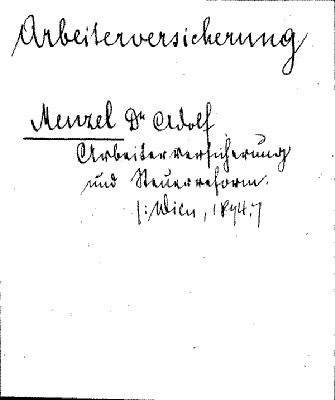 Arbeiterversicherung
Menzel Dr Adolf
Arbeiterversicherung
und Steuerreform.
/: Wien, 1894. /